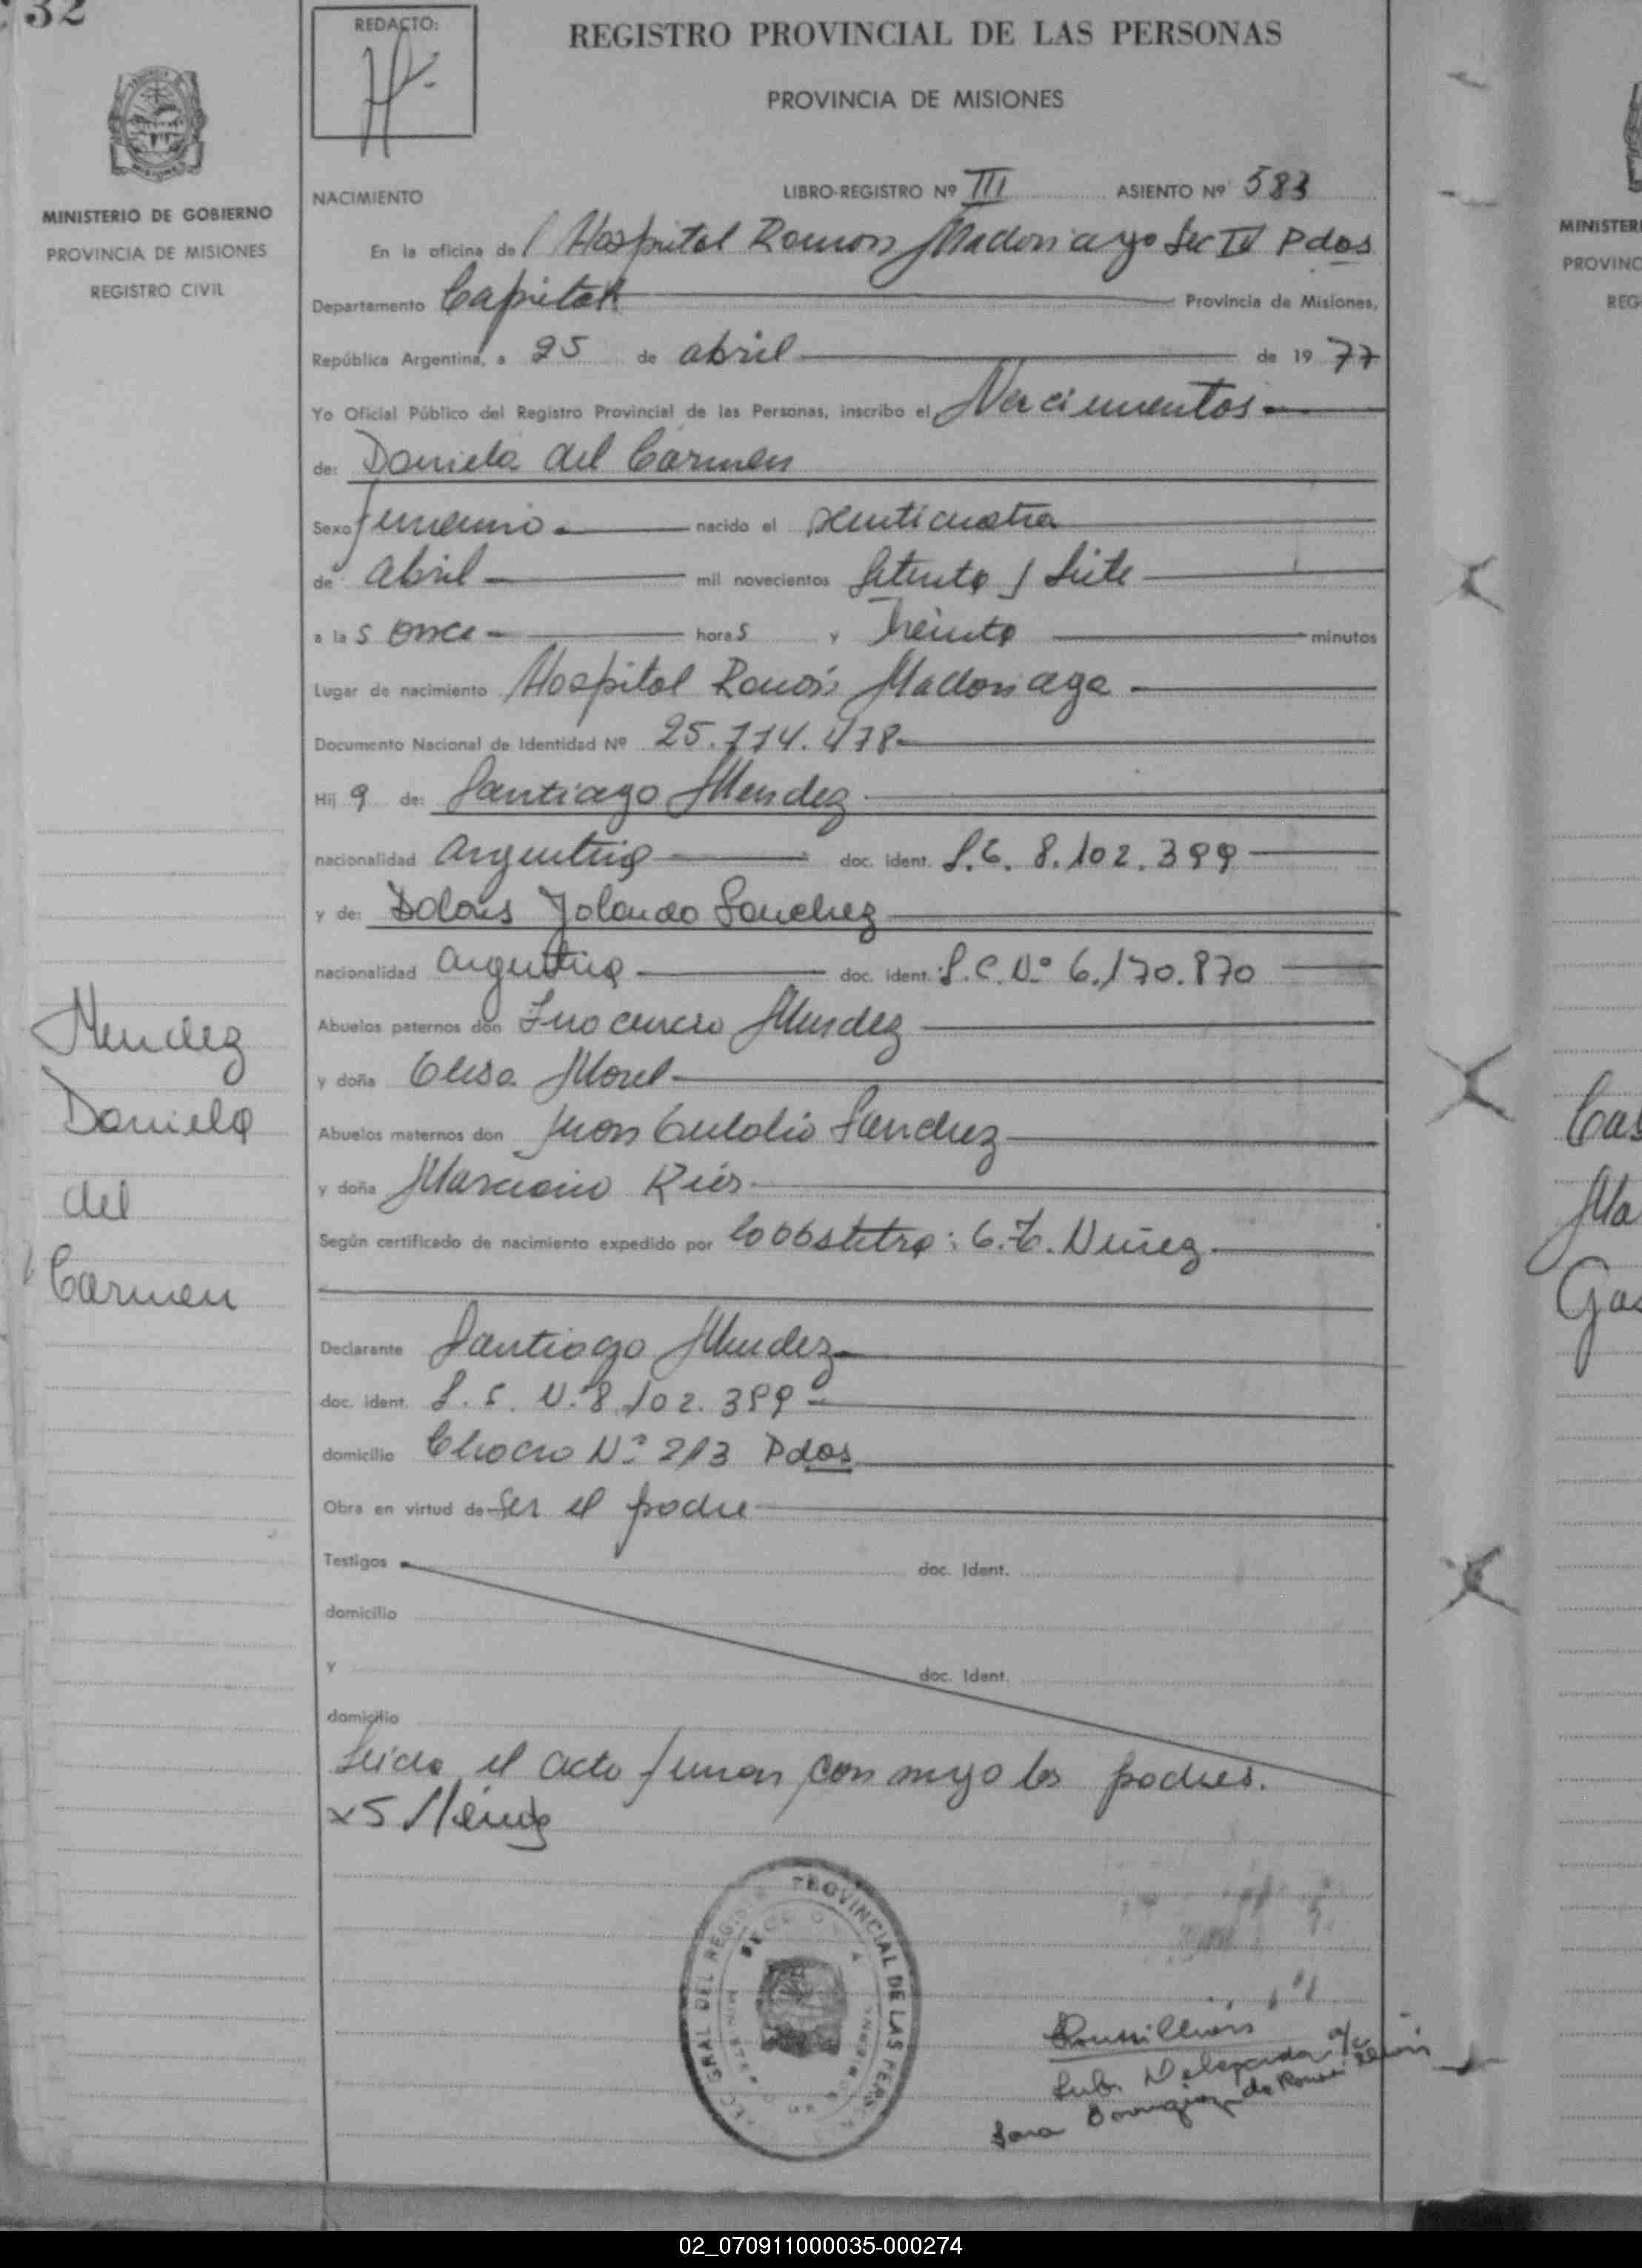 32
REDACTO:
REGISTRO PROVINCIAL DE LAS PERSONAS
PROVINCIA DE MISIONES
MINISTERIO DE GOBIERNO
PROVINCIA DE MISIONES
REGISTRO CIVIL
NACIMIENTO LIBRO-REGISTRO Nº III ASIENTO Nº 583
En la oficina del Hospital Ramon Madariaga Sec IV Pdas
Departamento Capital Provincia de Misiones,
República Argentina, a 25 de abril de 1977
Yo Oficial Público del Registro Provincial de las Personas, inscribo el Nacimientos
de: Daniela del Carmen
Sexo femenino nacido el veinticuatro
de abril mil novecientos setenta y siete
a las once horas y treinta minutos
Lugar de nacimiento Hospital Ramón Madariaga
Documento Nacional de Identidad Nº 25.774.478
Hija de: Santiago Mendez
nacionalidad argentina doc. ident. 8.102.399
y de: Dolores Yolanda Sanchez
nacionalidad argentina doc. ident. L.C. Nº 6.170.870
Abuelos paternos don Inocencio Mendez
y doña Elisa Morel
Abuelos maternos don Juan Eulalio Sanchez
y doña Marciana Rios
Según certificado de nacimiento expedido por la obstetra: Nuñez
Declarante Santiago Mendez
doc. ident. 8.102.399
domicilio Chaco Nº 213 Pdas
Obra en virtud de Ser el padre
Testigos doc. Ident.
domicilio
y doc. Ident.
domicilio
Leida el acta firman con migo los padres.
Mendez
Daniela
del
Carmen
DIREC. GRAL DEL REGISTRO PROVINCIAL DE LAS PERS
Sub. Delegada a/c
Sara de
MINISTER
PROVINC
REG
Cas
Ma
Ga
02_070911000035-000274